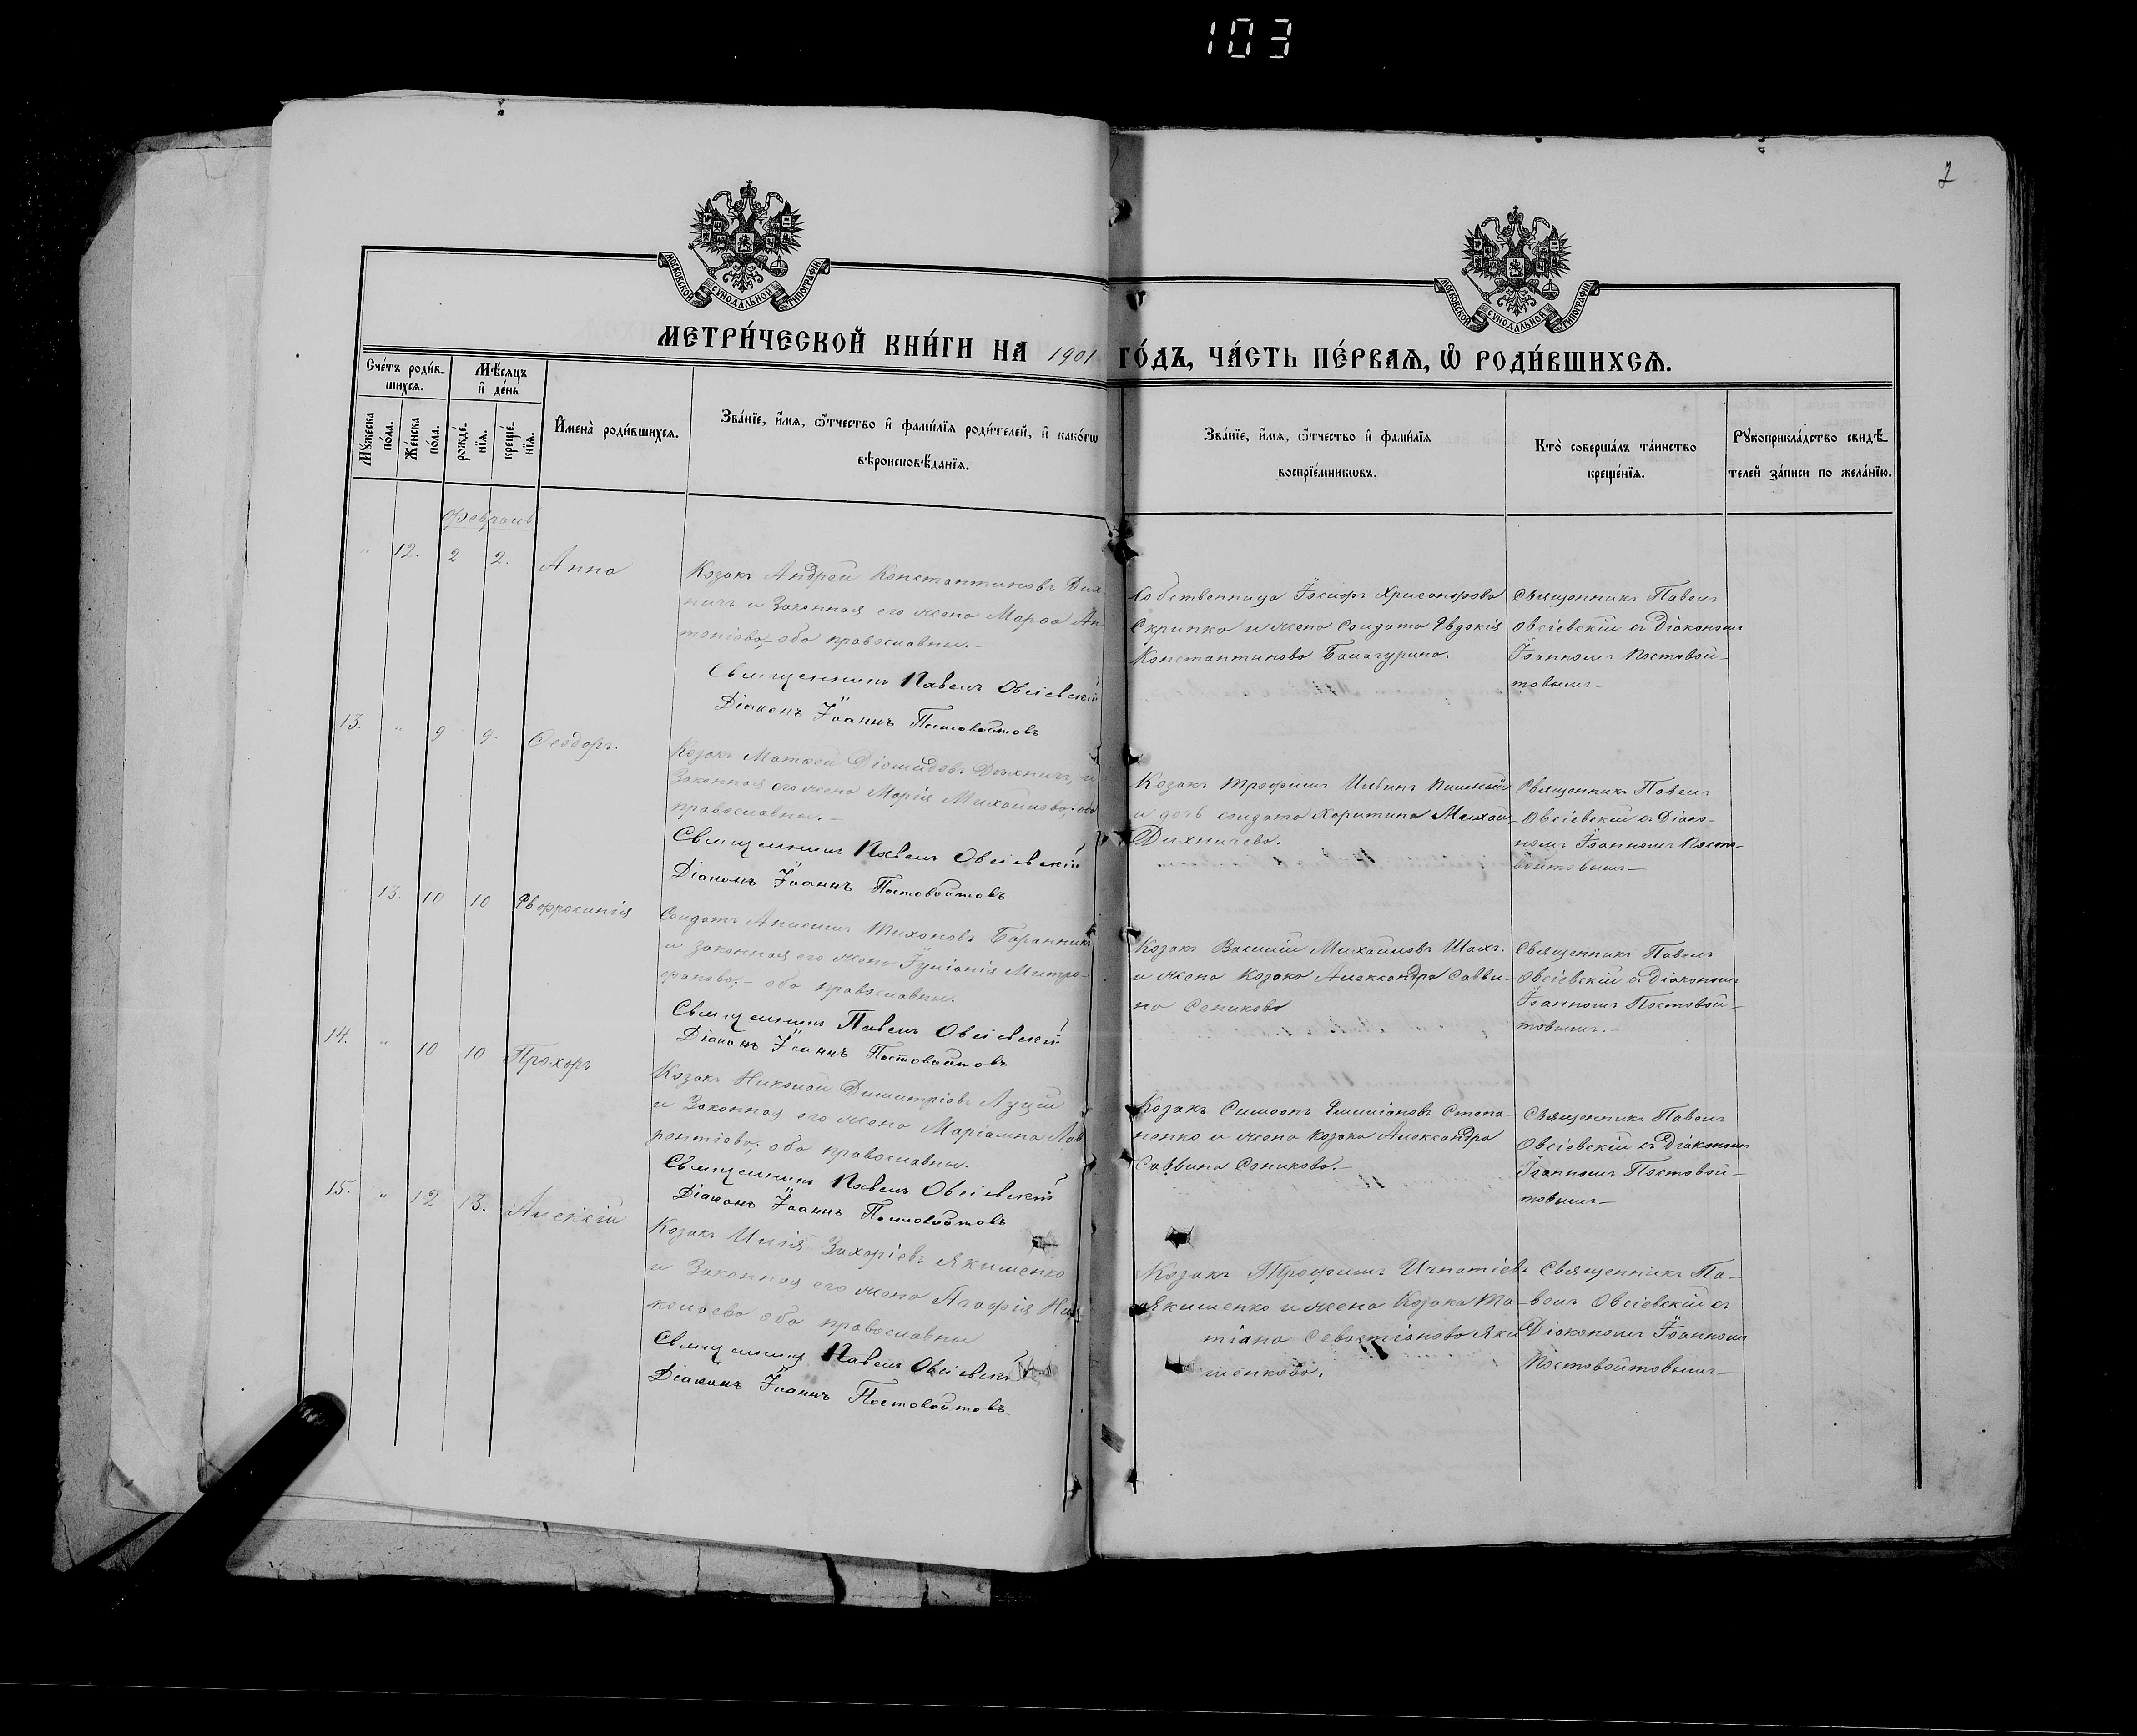 103
2
МОСКОВСКОЙ СѴНОДАЛЬНОЙ ТИПОГРАФІИ
МОСКОВСКОЙ СѴНОДАЛЬНОЙ ТИПОГРАФІИ
МЕТРИ́ЧЕСКОЙ КНИ́ГИ НА 1901 ГО́ДЪ, ЧА́СТЬ ПЕ́РВАѦ, Ѡ҆ РОДИ́ВШИХСѦ.
Сче́тъ роди́в-
шихсѧ.
Мѣ́сѧцъ
и҆ де́нь
Мꙋ́жеска
по́ла.
Же́нска
по́ла.
рожде́-
нїѧ.
креще́-
нїѧ.
И҆мена̀ роди́вшихсѧ.
Зва́нїе, и҆́мѧ, ѻ҆́тчество и҆ фами́лїѧ роди́телей, и҆ како́гѡ
вѣроисповѣ́данїѧ.
Зва́нїе, и҆́мѧ, ѻ҆́тчество и҆ фами́лїѧ
воспрїе́мникѡвъ.
Кто̀ соверша́лъ та́инство
креще́нїѧ.
Рꙋкоприкла́дство свидѣ́-
телей за́писи по жела́нїю.
Февраль
" 12. 2 2. Анна
Козакъ Андрей Константиновъ Дих-
ничъ и законная его жена Марѳа Ан-
тоніева, оба православны.-
Священникъ Павелъ Овсіевскій
Діаконъ Іоаннъ Постовойтовъ
Собственница Іосифъ Хрисанфова
Скрипка и жена солдата Евдокія
Константинова Балагурина.
Священникъ Павелъ
Овсіевскій съ Діакономъ
Іоанномъ Постовой-
товымъ-
13. " 9 9. Ѳеодоръ.
Козакъ Матѳей Діомидовъ Дихничъ, и
законная его жена Марія Михайлова, оба
православны.-
Священникъ Павелъ Овсіевскій
Діаконъ Іоаннъ Постовойтовъ.
Козакъ Трофимъ Ильинъ
и дочь солдата Харитина
Дихничева.
Священникъ Павелъ
Овсіевскій съ Діако-
номъ Іоанномъ Посто-
войтовымъ-
13. 10 10 Евфросинія
Солдатъ Анисимъ Тихоновъ Баранникъ
и законная его жена Іуліанія Митро-
фанова,- оба православны.
Священникъ Павелъ Овсіевскій
Діаконъ Іоаннъ Постовойтовъ
Козакъ Василій Михайловъ Шахъ.
и жена козака Александра Савви-
на Сеникова
Священникъ Павелъ
Овсіевскій съ Діакономъ
Іоанномъ Постовой-
товымъ.-
14. " 10 10 Прохоръ
Козакъ Николай Димитріевъ Луций
и законная его жена Маріамна Лав-
рентіева; оба православны.-
Священникъ Павелъ Овсіевскій
Діаконъ Іоаннъ Постовойтовъ
Козакъ Симеонъ Емиліановъ Степа-
ненко и жена козака Александра
Саввина Сеникова.-
Священникъ Павелъ
Овсіевскій съ Діакономъ
Іоанномъ Постовой-
товымъ-
15. " 12 13. Алексій
Козакъ Илія Захаріевъ Якименко
и законная его жена Агафія Ни-
колаева оба православны
Священникъ Павелъ Овсіевскій
Діаконъ Іоаннъ Постовойтовъ.
Козакъ Трофимъ Игнатіевъ
Якименко и жена козака Та-
тіана Севастіанова Яки
менкова.
Священникъ Па-
велъ Овсіевскій съ
Діакономъ Іоанномъ
Постовойтовымъ-